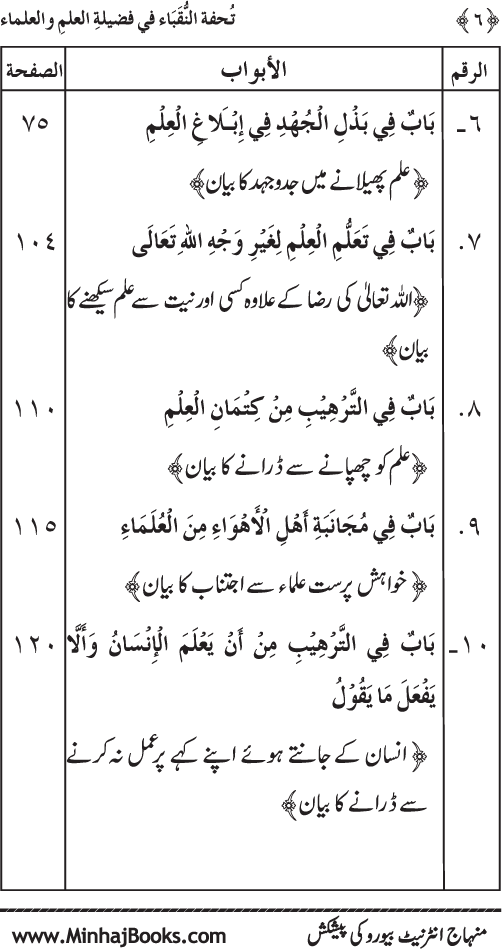 ﴿٦﴾ تُحفة النُّقَبَاء في فضيلةِ العلمِ والعلماء
الرقم الأبواب الصفحة
٦ـ بَابٌ فِي بَذْلِ الْجُهْدِ فِي إِبْلَاغِ الْعِلْمِ ٧٥
﴿علم پھیلانے میں جدوجہد کا بیان﴾
٧. بَابٌ فِي تَعَلُّمِ الْعِلْمِ لِغَيْرِ وَجْهِ اللهِ تَعَالَى ١٠٤
﴿اللہ تعالیٰ کی رضا کے علاوہ کسی اور نیت سے علم سیکھنے کا
بیان﴾
٨. بَابٌ فِي التَّرْهِيْبِ مِنْ كِتْمَانِ الْعِلْمِ ١١٠
﴿علم کو چھپانے سے ڈرانے کا بیان﴾
٩. بَابٌ فِي مُجَانَبَةِ أَهْلِ الْأَهْوَاءِ مِنَ الْعُلَمَاءِ ١١٥
﴿خواہش پرست علماء سے اجتناب کا بیان﴾
١٠ـ بَابٌ فِي التَّرْهِيْبِ مِنْ أَنْ يَعْلَمَ الْإِنْسَانُ وَأَلَّا ١٢٠
يَفْعَلَ مَا يَقُوْلُ
﴿انسان کے جانتے ہوئے اپنے کہے پر عمل نہ کرنے
سے ڈرانے کا بیان﴾
منہاج انٹرنیٹ بیورو کی پیشکش www.MinhajBooks.com